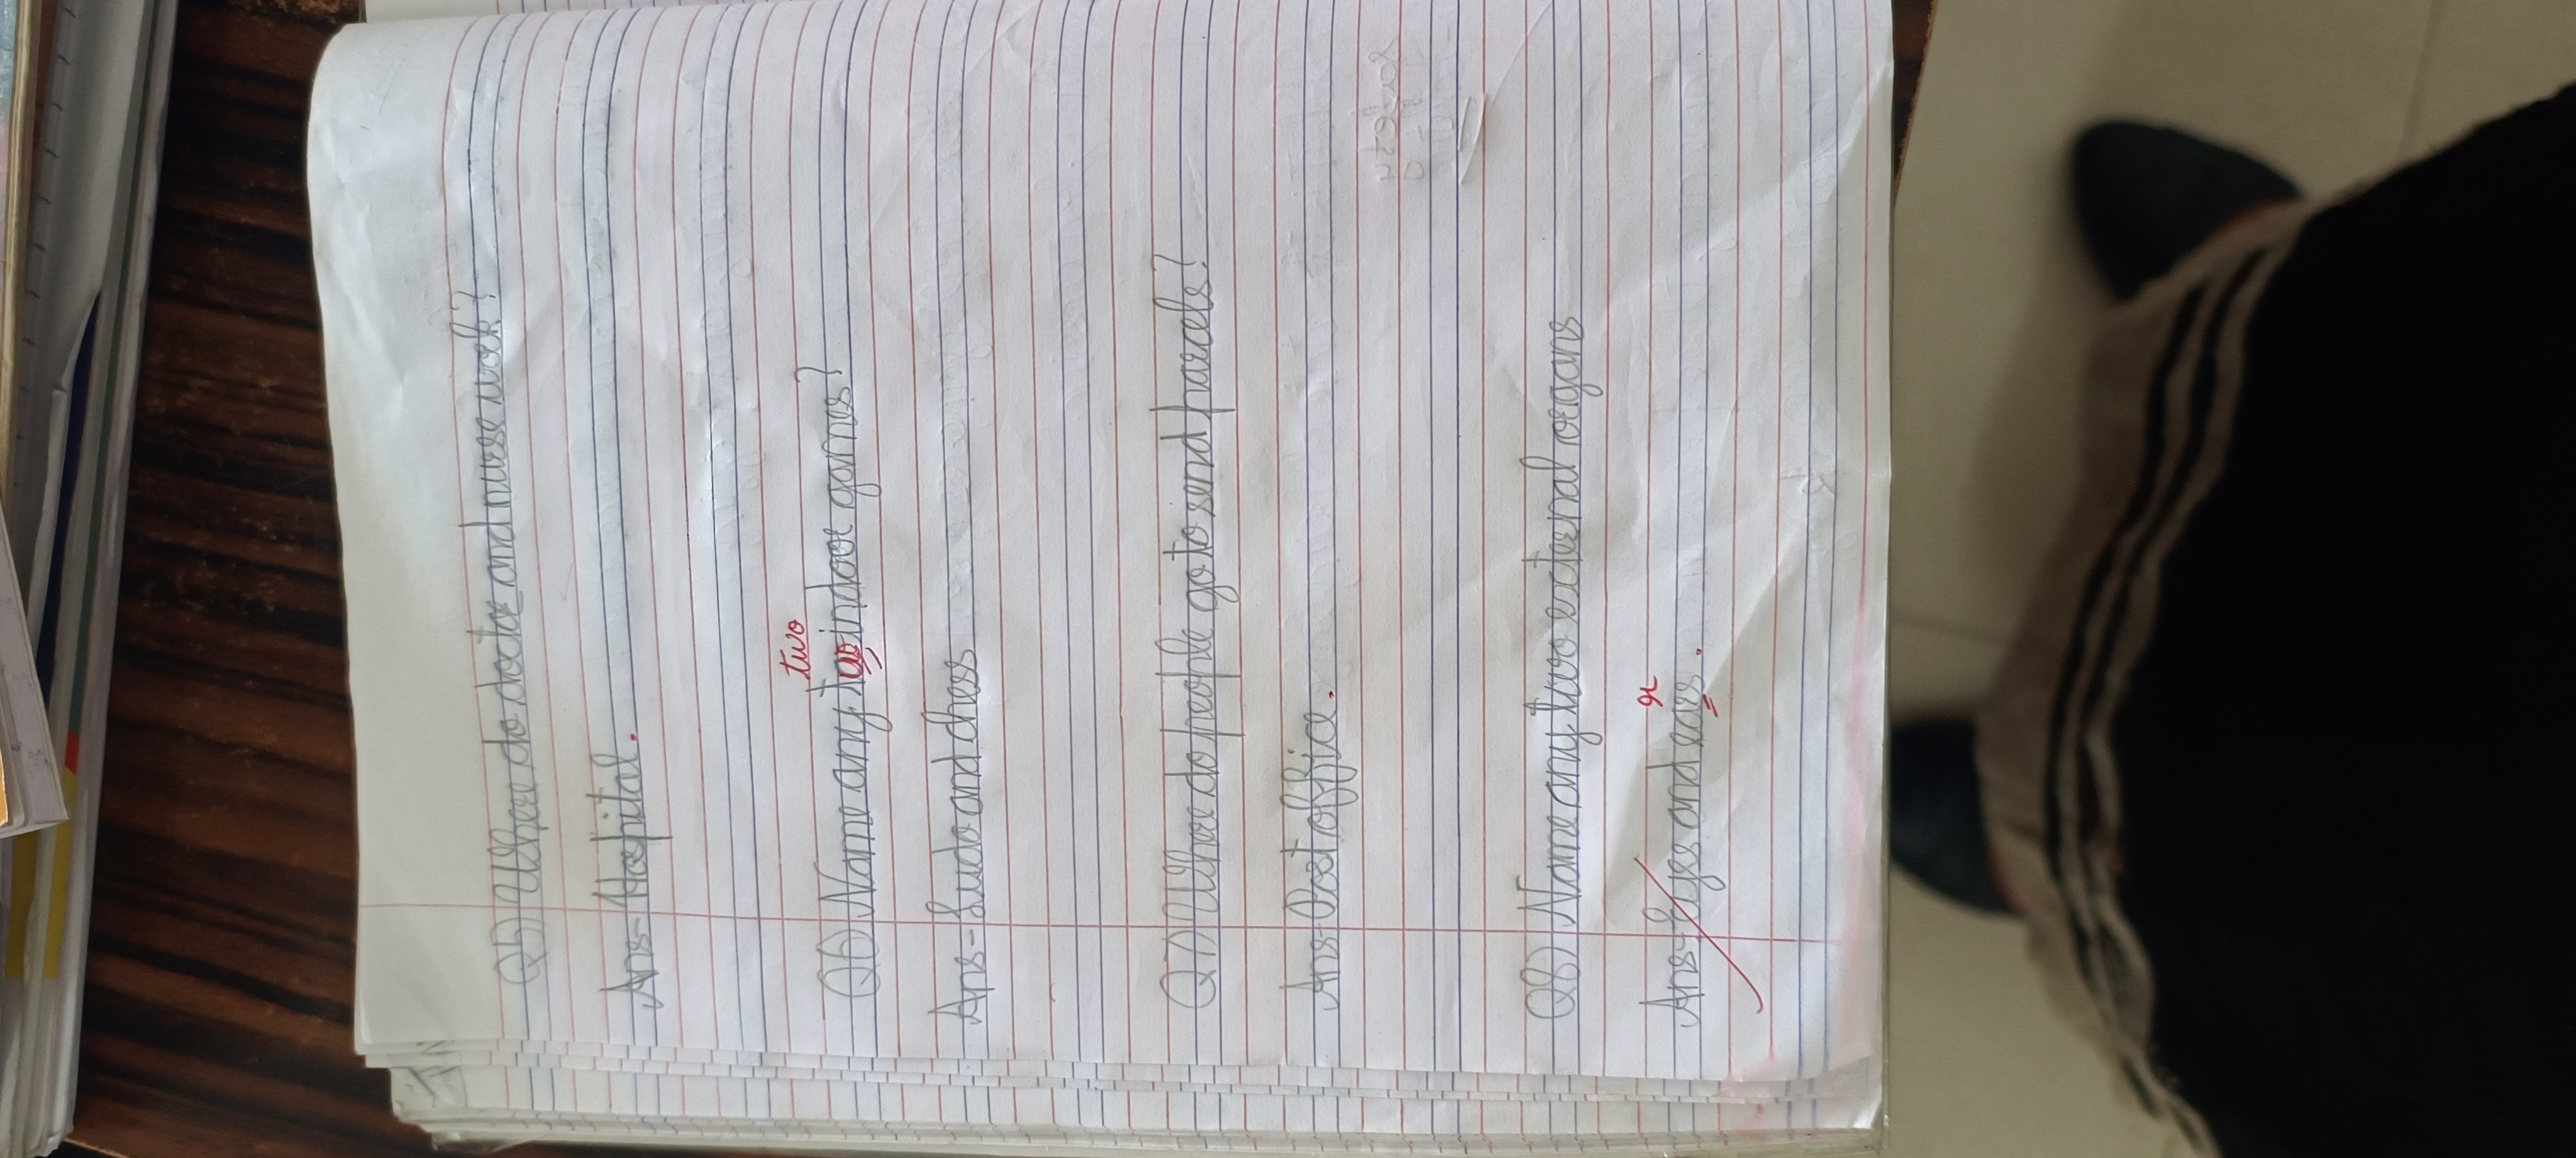 Q5) Where do doctor and nurse work?
Ans- Hospital.
two
Q6) Name any two indoor games?
Ans- Ludo and ches
Q7) Whore do people go to send parcels?
Ans- Post office.
Q8) Name any two external organs
r
Ans- Eyes and eas.